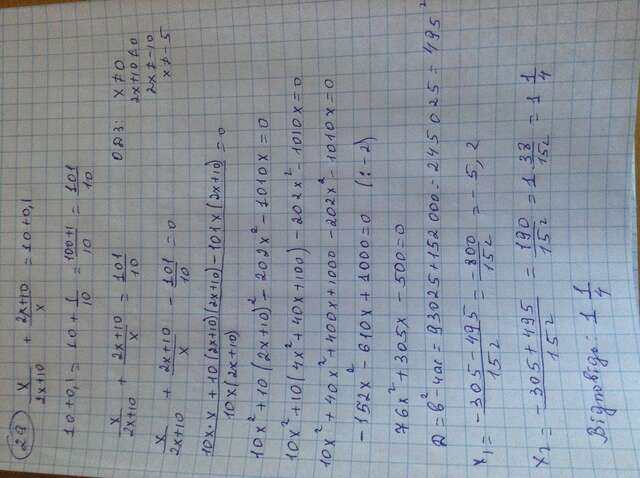 29) x/(2x+10) + (2x+10)/x = 10+0,1
10+0,1 = 10 + 1/10 = (100+1)/10 = 101/10
x/(2x+10) + (2x+10)/x = 101/10 ОДЗ: x≠0
2x+10≠0
2x≠-10
x≠-5
x/(2x+10) + (2x+10)/x - 101/10 = 0
(10x·x + 10(2x+10)(2x+10) - 101x(2x+10))/(10x(2x+10)) = 0
10x² + 10(2x+10)² - 202x² - 1010x = 0
10x² + 10(4x² + 40x + 100) - 202x² - 1010x = 0
10x² + 40x² + 400x + 1000 - 202x² - 1010x = 0
-152x² - 610x + 1000 = 0 (:-2)
76x² + 305x - 500 = 0
D = b² - 4ac = 93025 + 152000 = 245025 = 495²
x₁ = (-305-495)/152 = -800/152 = -5,2
x₂ = (-305+495)/152 = 190/152 = 1 38/152 = 1 1/4
Відповідь: 1 1/4